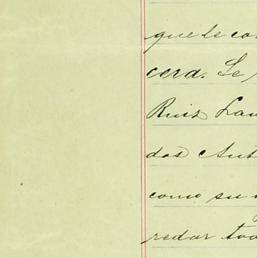 que le co
cera. Se
Ruiz Lau
dos Ant
como su
redar tod